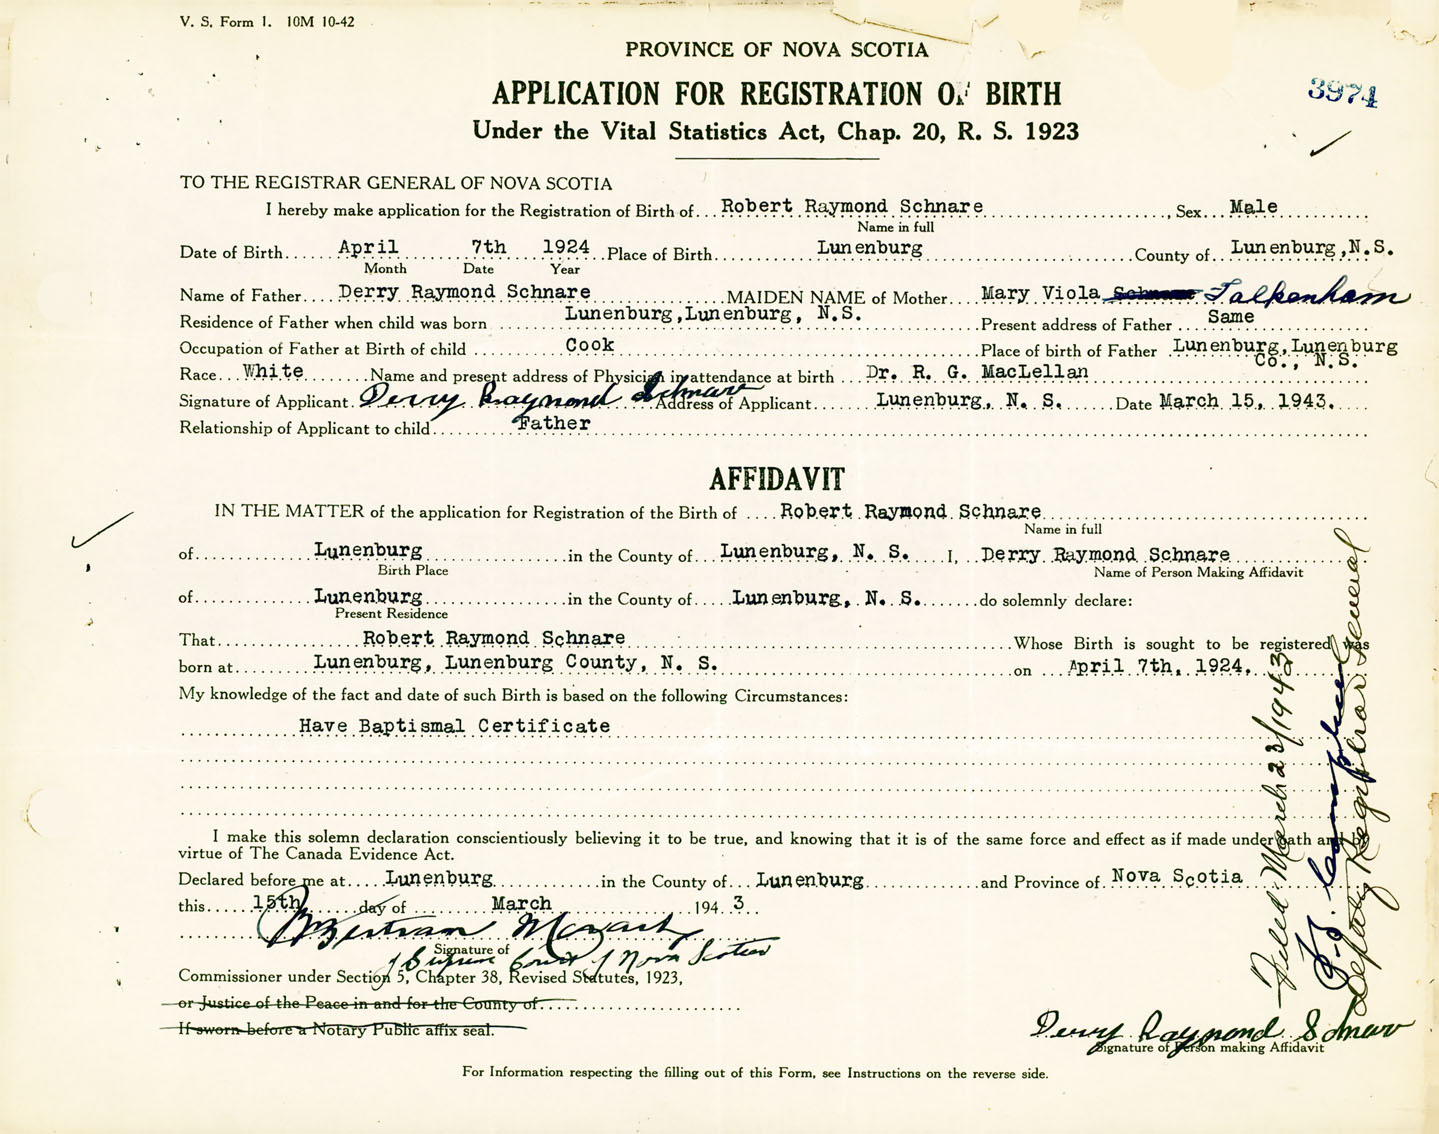 V. S. Form 1. 10M 10-42
PROVINCE OF NOVA SCOTIA
APPLICATION FOR REGISTRATION OF BIRTH
3974
Under the Vital Statistics Act, Chap. 20, R. S. 1923
TO THE REGISTRAR GENERAL OF NOVA SCOTIA
I hereby make application for the Registration of Birth of Robert Raymond Schnare, Sex Male
Name in full
Date of Birth April 7th 1924 Place of Birth Lunenburg County of Lunenburg, N.S.
Month Date Year
Name of Father Derry Raymond Schnare MAIDEN NAME of Mother Mary Viola Schnare Falkenham
Residence of Father when child was born Lunenburg, Lunenburg, N.S. Present address of Father Same
Occupation of Father at Birth of child Cook Place of birth of Father Lunenburg, Lunenburg
Co., N.S.
Race White Name and present address of Physician in attendance at birth Dr. R. G. MacLellan
Signature of Applicant Derry Raymond Schnare Address of Applicant Lunenburg, N. S. Date March 15, 1943.
Relationship of Applicant to child Father
AFFIDAVIT
IN THE MATTER of the application for Registration of the Birth of Robert Raymond Schnare
Name in full
of Lunenburg in the County of Lunenburg, N. S. I, Derry Raymond Schnare
Birth Place Name of Person Making Affidavit
of Lunenburg in the County of Lunenburg, N. S. do solemnly declare:
Present Residence
That Robert Raymond Schnare Whose Birth is sought to be registered was
born at Lunenburg, Lunenburg County, N. S. on April 7th, 1924.
My knowledge of the fact and date of such Birth is based on the following Circumstances:
Have Baptismal Certificate
I make this solemn declaration conscientiously believing it to be true, and knowing that it is of the same force and effect as if made under oath and by
virtue of The Canada Evidence Act.
Declared before me at Lunenburg in the County of Lunenburg and Province of Nova Scotia
this 15th day of March 1943
Bertram
Signature of
of Supreme Court of Nova Scotia
Commissioner under Section 5, Chapter 38, Revised Statutes, 1923,
or Justice of the Peace in and for the County of
If sworn before a Notary Public affix seal.
Derry Raymond Schnare
Signature of Person making Affidavit
For Information respecting the filling out of this Form, see Instructions on the reverse side.
Filed March 23/1943
Campbell
Deputy Registrar General